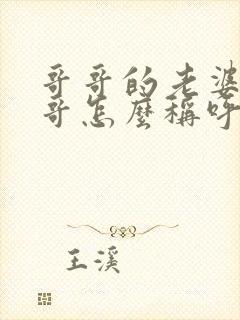 哥哥的老婆
哥怎麼稱呼
王溪